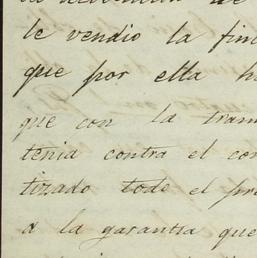 le vendio la fin
que por ella h
que con la tram
tenia contra el con
tizado tode el pre
a la garantia que